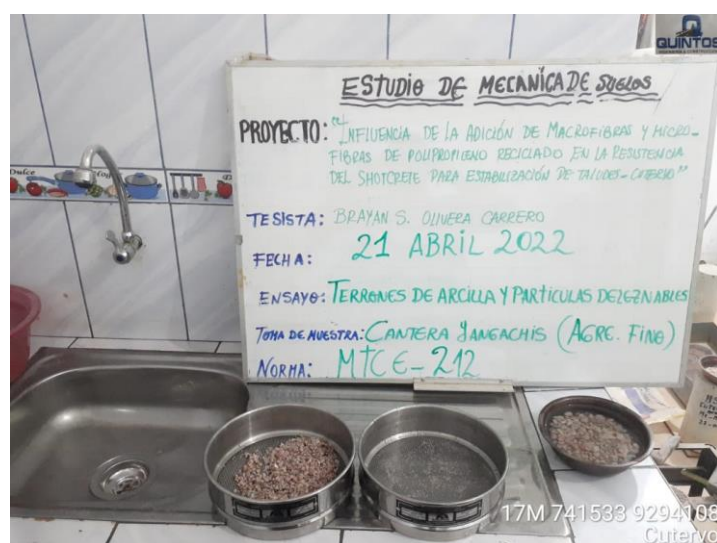 QUINTOS
ESTUDIO DE MECÁNICA DE SUELOS
PROYECTO: "INFLUENCIA DE LA ADICIÓN DE MACROFIBRAS Y MICRO-
FIBRAS DE POLIPROPILENO RECICLADO EN LA RESISTENCIA
DEL SHOTCRETE PARA ESTABILIZACIÓN DE TALUDES-CUTERVO"
TESISTA: BRAYAN S. OLIVERA CARRERO
FECHA: 21 ABRIL 2022
ENSAYO: TERRONES DE ARCILLA Y PARTICULAS DEZEZNABLES
TOMA DE MUESTRA: CANTERA YANGACHIS (AGRE. FINO)
NORMA: MTC E-212
17M 741533 9294108
Cutervo